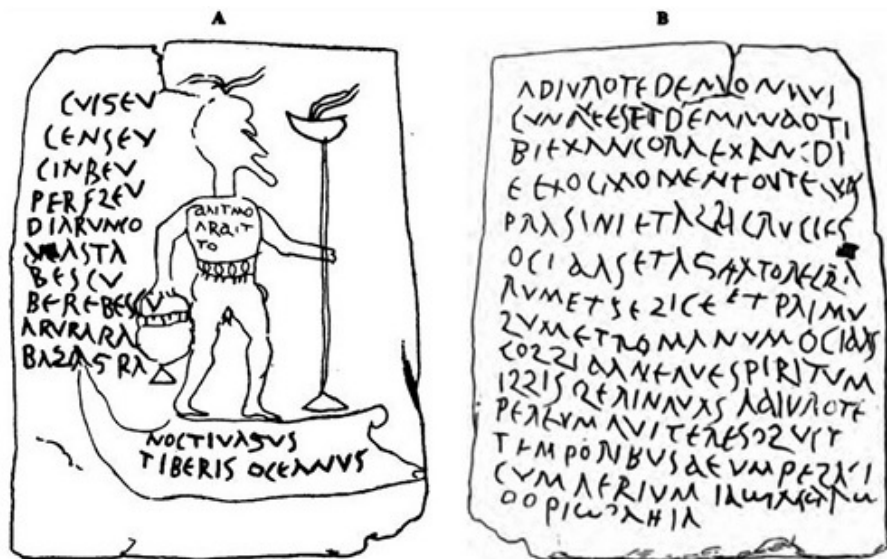 A
B
CUIGEU
CENSEU
CINBEU
PERFLEU
DIARUNCO
DEASTA
BESCU
BEREBESCU
ARURARA
BAZAGRA
ANTMO
ARAIT
TO
NOCTIVAGUS
TIBERIS OCEANUS
ADIURO TE DEMON QUI
CUNQUE ES ET DEMANDO TI
BI EX ANC ORA EX ANC DI
E EX OC MOMENTO UT EQUOS
PRASINI ET ALBI CRUCIES
OCIDAS ET AGITATORE CLA
RUM ET FELICE ET PRIMU
LUM ET ROMANUM OCIDAS
COLLIDA NEQUE SPIRITUM
ILLIS LERINQUAS ADIURO TE
PER EUM QUI TE RESOLVIT
TEMPORIBUS DEUM PELAGI
CUM AERIUM